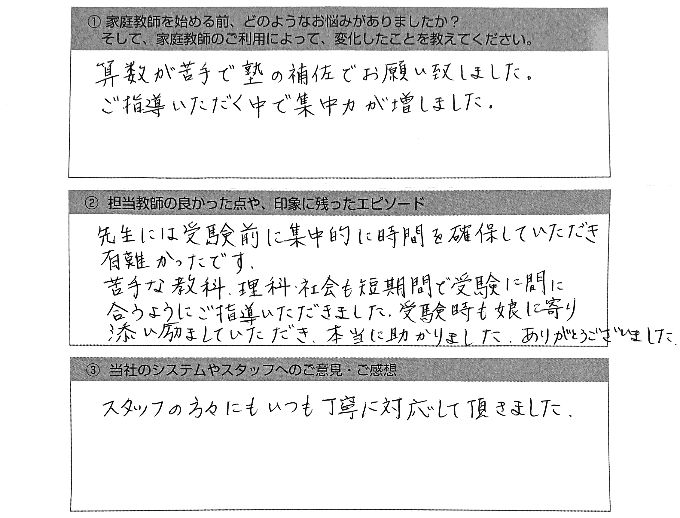 ① 家庭教師を始める前、どのようなお悩みがありましたか？
そして、家庭教師のご利用によって、変化したことを教えてください。
算数が苦手で塾の補佐でお願い致しました。
ご指導いただく中で集中力が増しました。
② 担当教師の良かった点や、印象に残ったエピソード
先生には受験前に集中的に時間を確保していただき
有難かったです。
苦手な教科、理科・社会も短期間で受験に間に
合うようにご指導いただきました。受験時も娘に寄り
添い励ましていただき、本当に助かりました。ありがとうございました。
③ 当社のシステムやスタッフへのご意見・ご感想
スタッフの方々にもいつも丁寧に対応して頂きました。